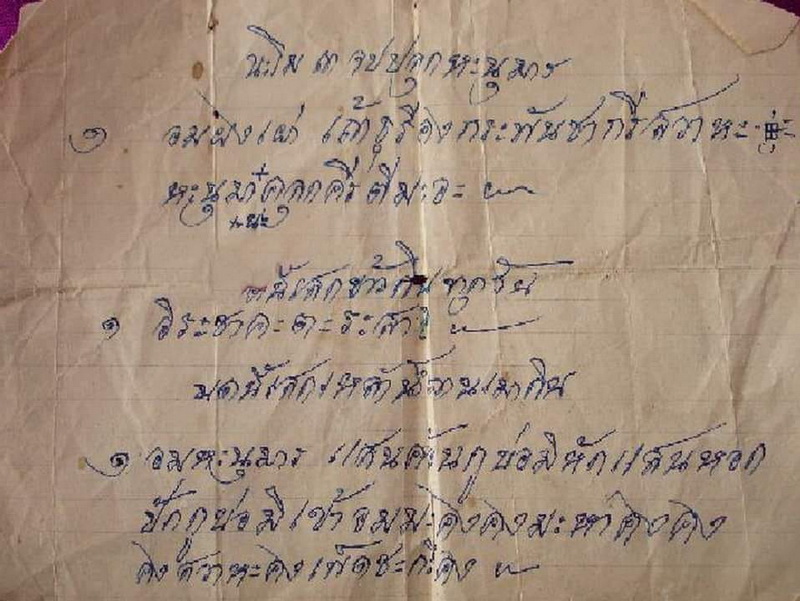 นะโม ๓ จบปลุกหะนุมาร
๑ อมผงเผ่า เล้าธุรีองกระพันชาตรีสวาหะ
หะนุมาคลุกคีรีตีมะอะ
นี้เสกข้าวกินทุกวัน
๑ อิระชาคะตะระสา
บดนี้เสกเหล้านี้ว่านเมากิน
๑ อมหะนุมาร แสนค้นกูบ่อมีหักแสนหอก
ปักกูบ่อมีเข้าอมมะคงคงมะหาคงคง
คงสวาหะคงเพ็ดชะกรีคง